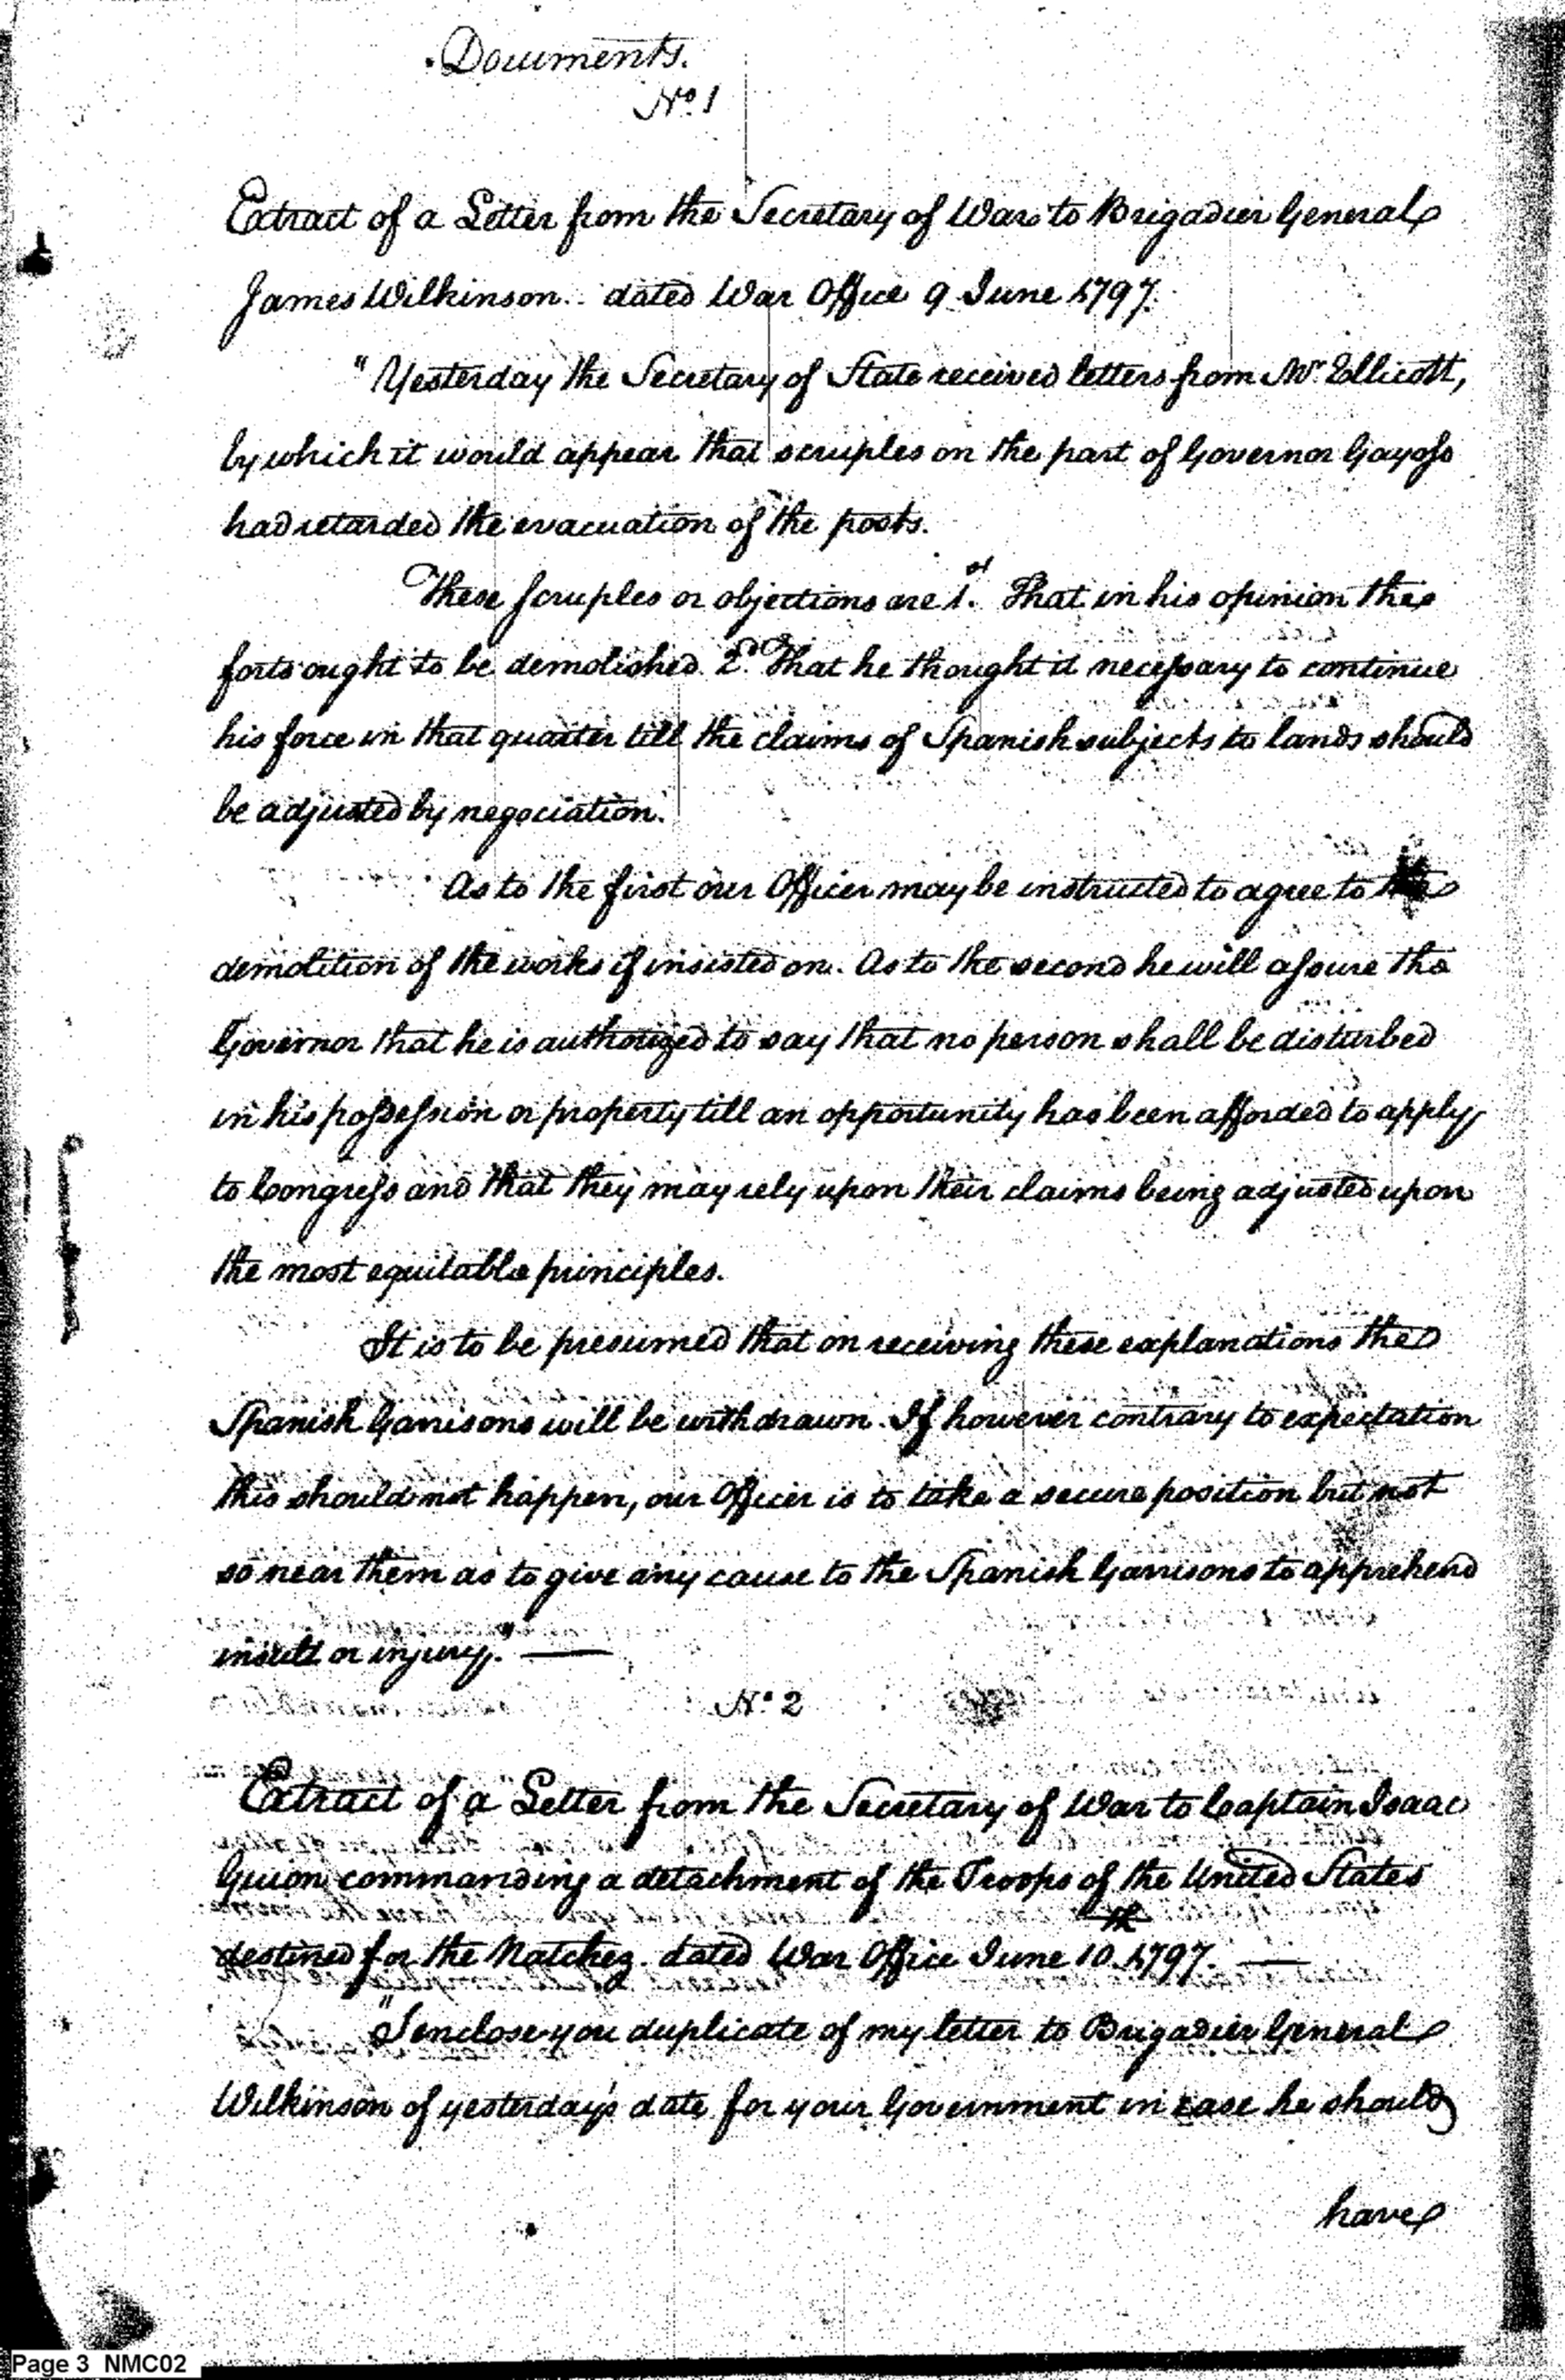 Documents.
No. 1
Extract of a Letter from the Secretary of War to Brigadier General
James Wilkinson.. dated War Office 9 June 1797.
"Yesterday the Secretary of State received letters from Mr Ellicott,
by which it would appear that scruples on the part of Governor Gayoso
had retarded the evacuation of the posts.
These scruples or objections are 1st. That in his opinion the
forts ought to be demolished. 2d. That he thought it necessary to continue
his force in that quarter till the claims of Spanish subjects to lands should
be adjusted by negociation.
As to the first our Officer may be instructed to agree to the
demolition of the works if insisted on. As to the second he will assure the
Governor that he is authorized to say that no person shall be disturbed
in his possession or property till an opportunity has been afforded to apply
to Congress and that they may rely upon their claims being adjusted upon
the most equitable principles.
It is to be presumed that on receiving these explanations the
Spanish Garrisons will be withdrawn. If however contrary to expectation
this should not happen, our Officer is to take a secure position but not
so near them as to give any cause to the Spanish Garrisons to apprehend
insult or injury." —
No. 2
Extract of a Letter from the Secretary of War to Captain Isaac
Guion commanding a detachment of the Troops of the United States
destined for the Natchez. dated War Office June 10th 1797. —
"I enclose you duplicate of my letter to Brigadier General
Wilkinson of yesterday's date for your Government in case he should
have
Page 3 NMC02